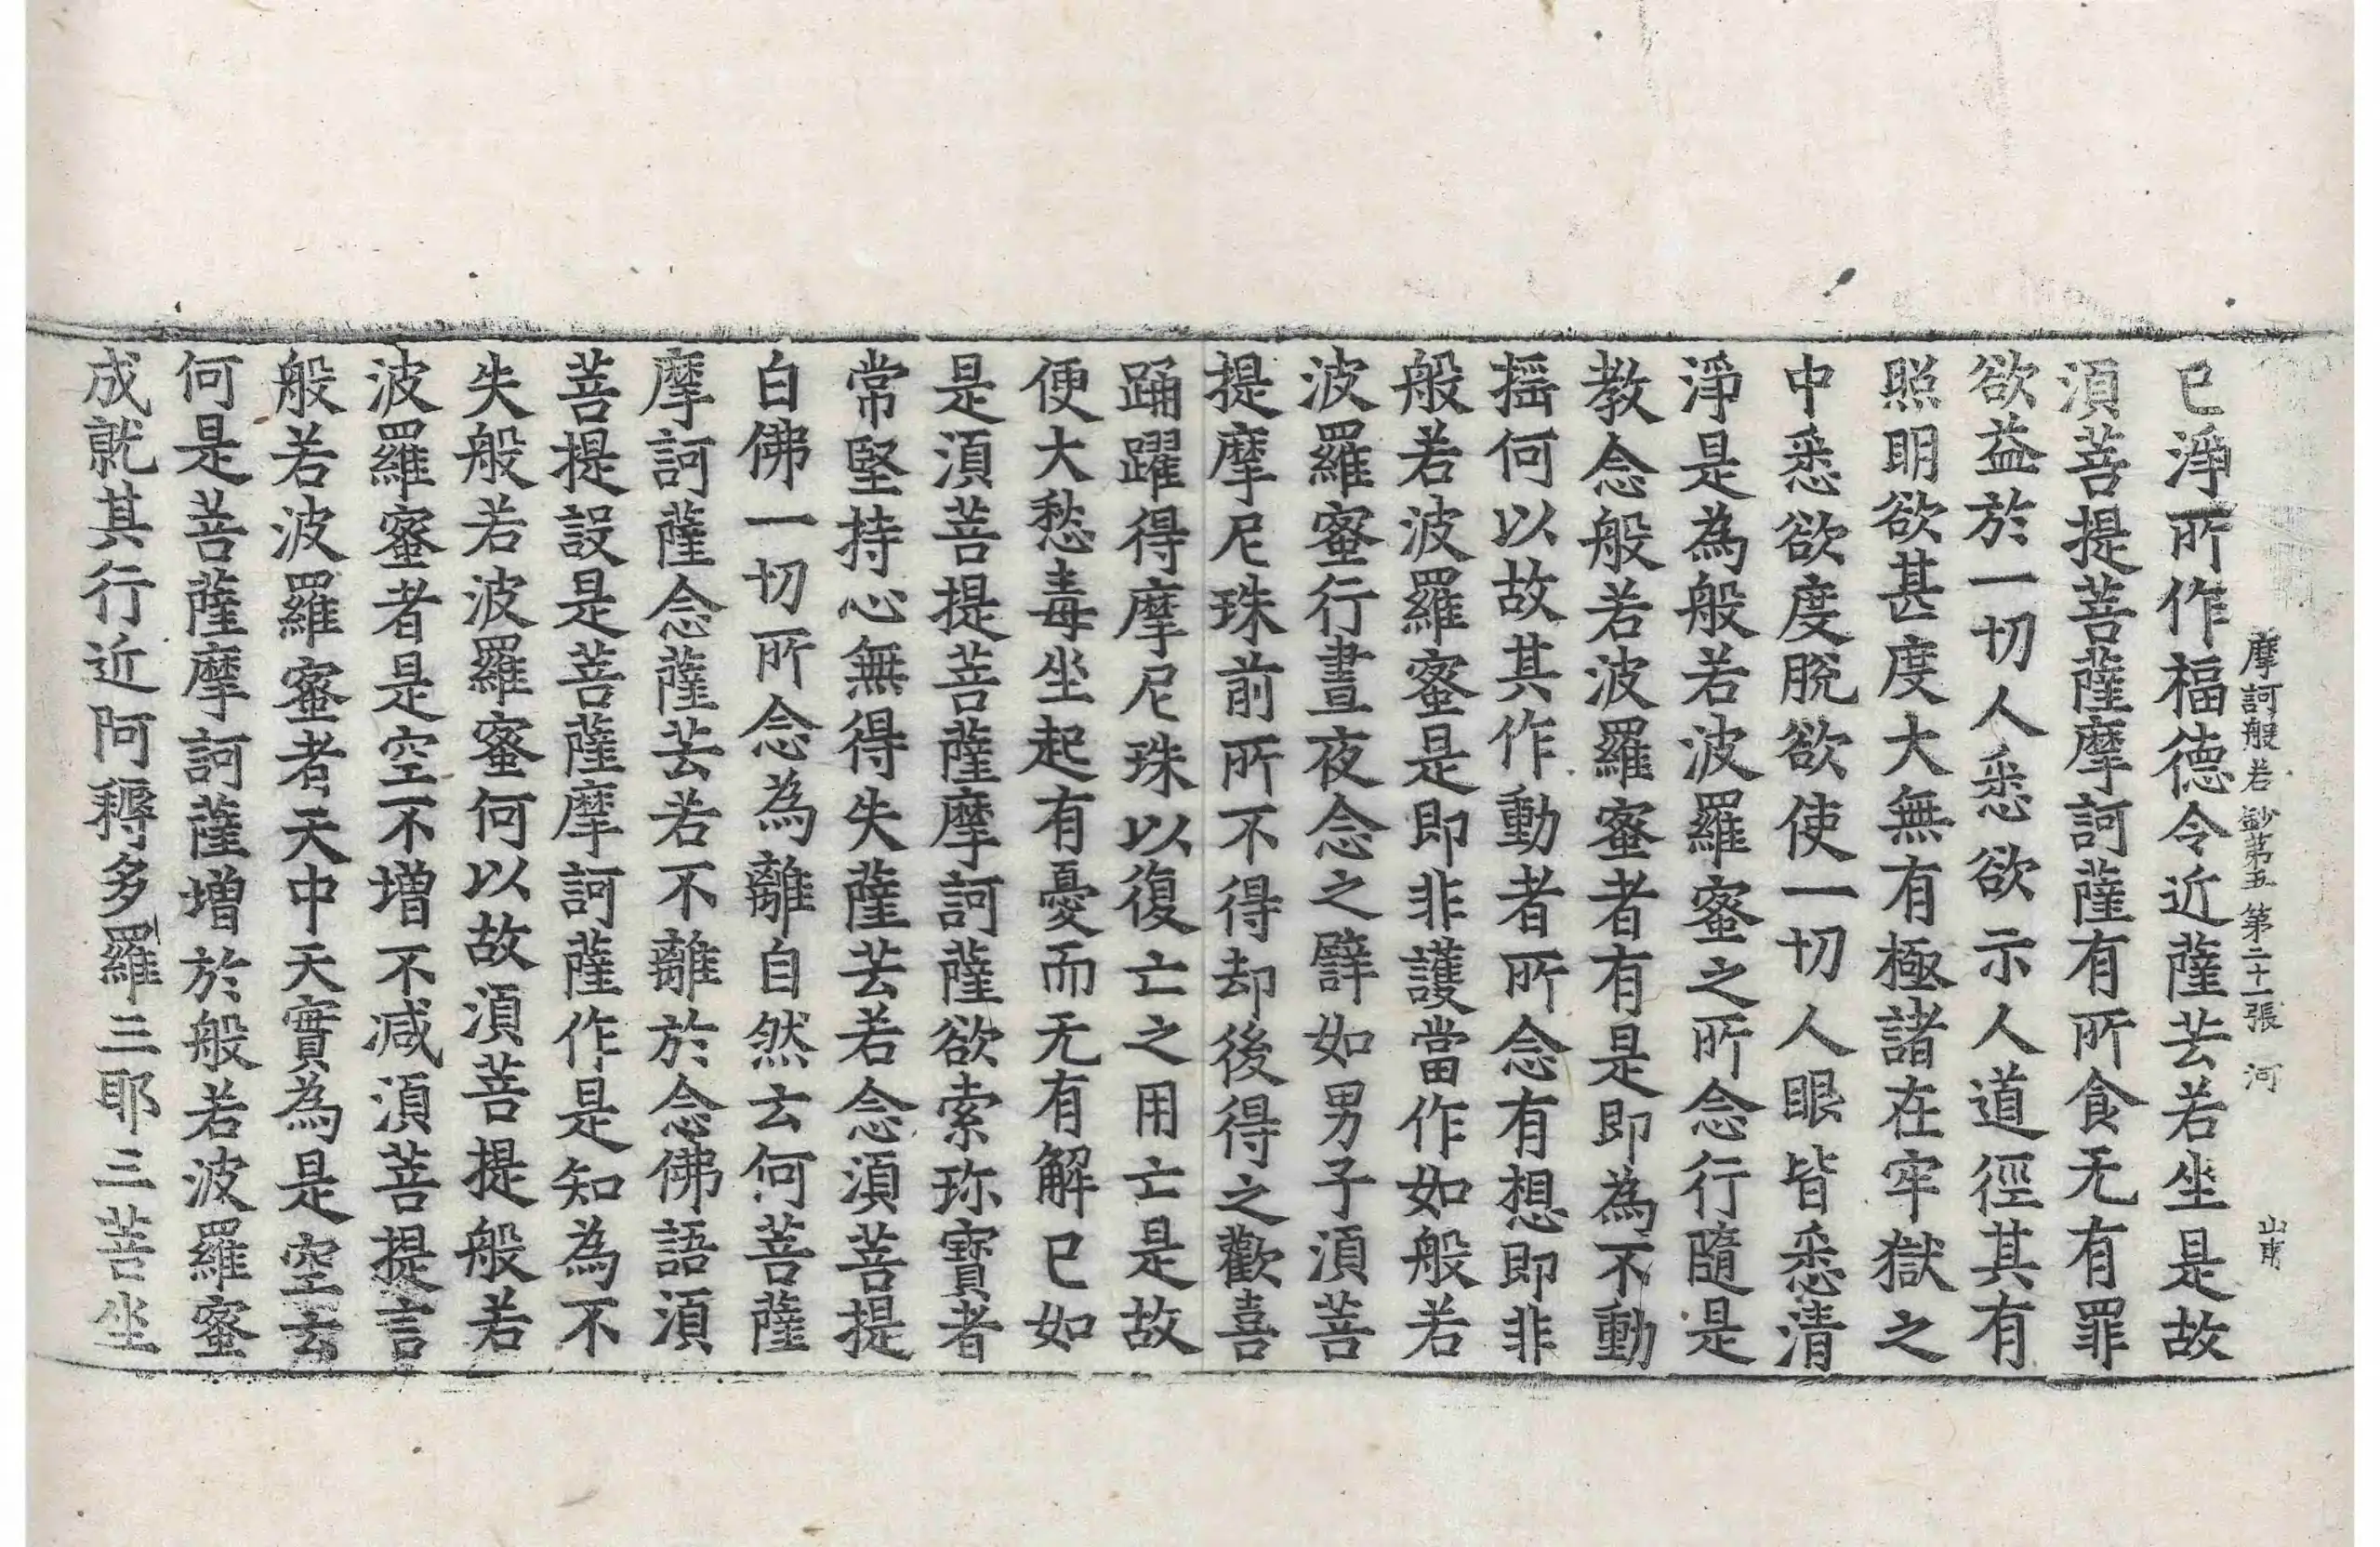 摩訶般若鈔第五 第二十一張 河
已淨所作福德令近薩芸若坐是故
湏菩提菩薩摩訶薩有所食无有罪
欲益於一切人悉欲示人道徑其有
照明欲甚度大無有極諸在牢獄之
中悉欲度脫欲使一切人眼皆悉清
淨是為般若波羅蜜之所念行隨是
教念般若波羅蜜者有是即為不動
搖何以故其作動者所念有想即非
般若波羅蜜是即非護當作如般若
波羅蜜行晝夜念之譬如男子湏菩
提摩尼珠前所不得却後得之歡喜
踊躍得摩尼珠以復亡之用亡是故
便大愁毒坐起有憂而无有解已如
是湏菩提菩薩摩訶薩欲索珎寶者
常堅持心無得失薩芸若念湏菩提
白佛一切所念為離自然云何菩薩
摩訶薩念薩芸若不離於念佛語湏
菩提設是菩薩摩訶薩作是知為不
失般若波羅蜜何以故湏菩提般若
波羅蜜者是空不增不減湏菩提言
般若波羅蜜者天中天實為是空云
何是菩薩摩訶薩增於般若波羅蜜
成就其行近阿耨多羅三耶三菩坐